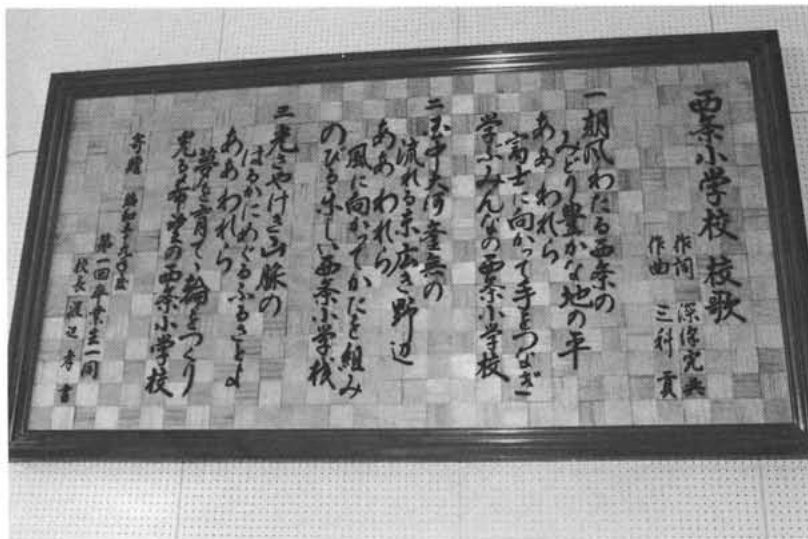 西条小学校 校歌
作詞 深沢
作曲 三科 貢
一 朝風わたる西条の
みどり豊かな地の平
ああ われら
富士に向かって手をつなぎ
学ぶみんなの西条小学校
二
流れる末 広き野辺
ああ われら
風に向かってかたを組み
のびる楽しい西条小学校
三 光さやけき山脈の
はるかにめぐるふるさとよ
ああ われら
夢を育て 輪をつくり
光る希望の西条小学校
寄贈 昭和五十九年度
第一回卒業生一同
校長 渡辺 孝 書